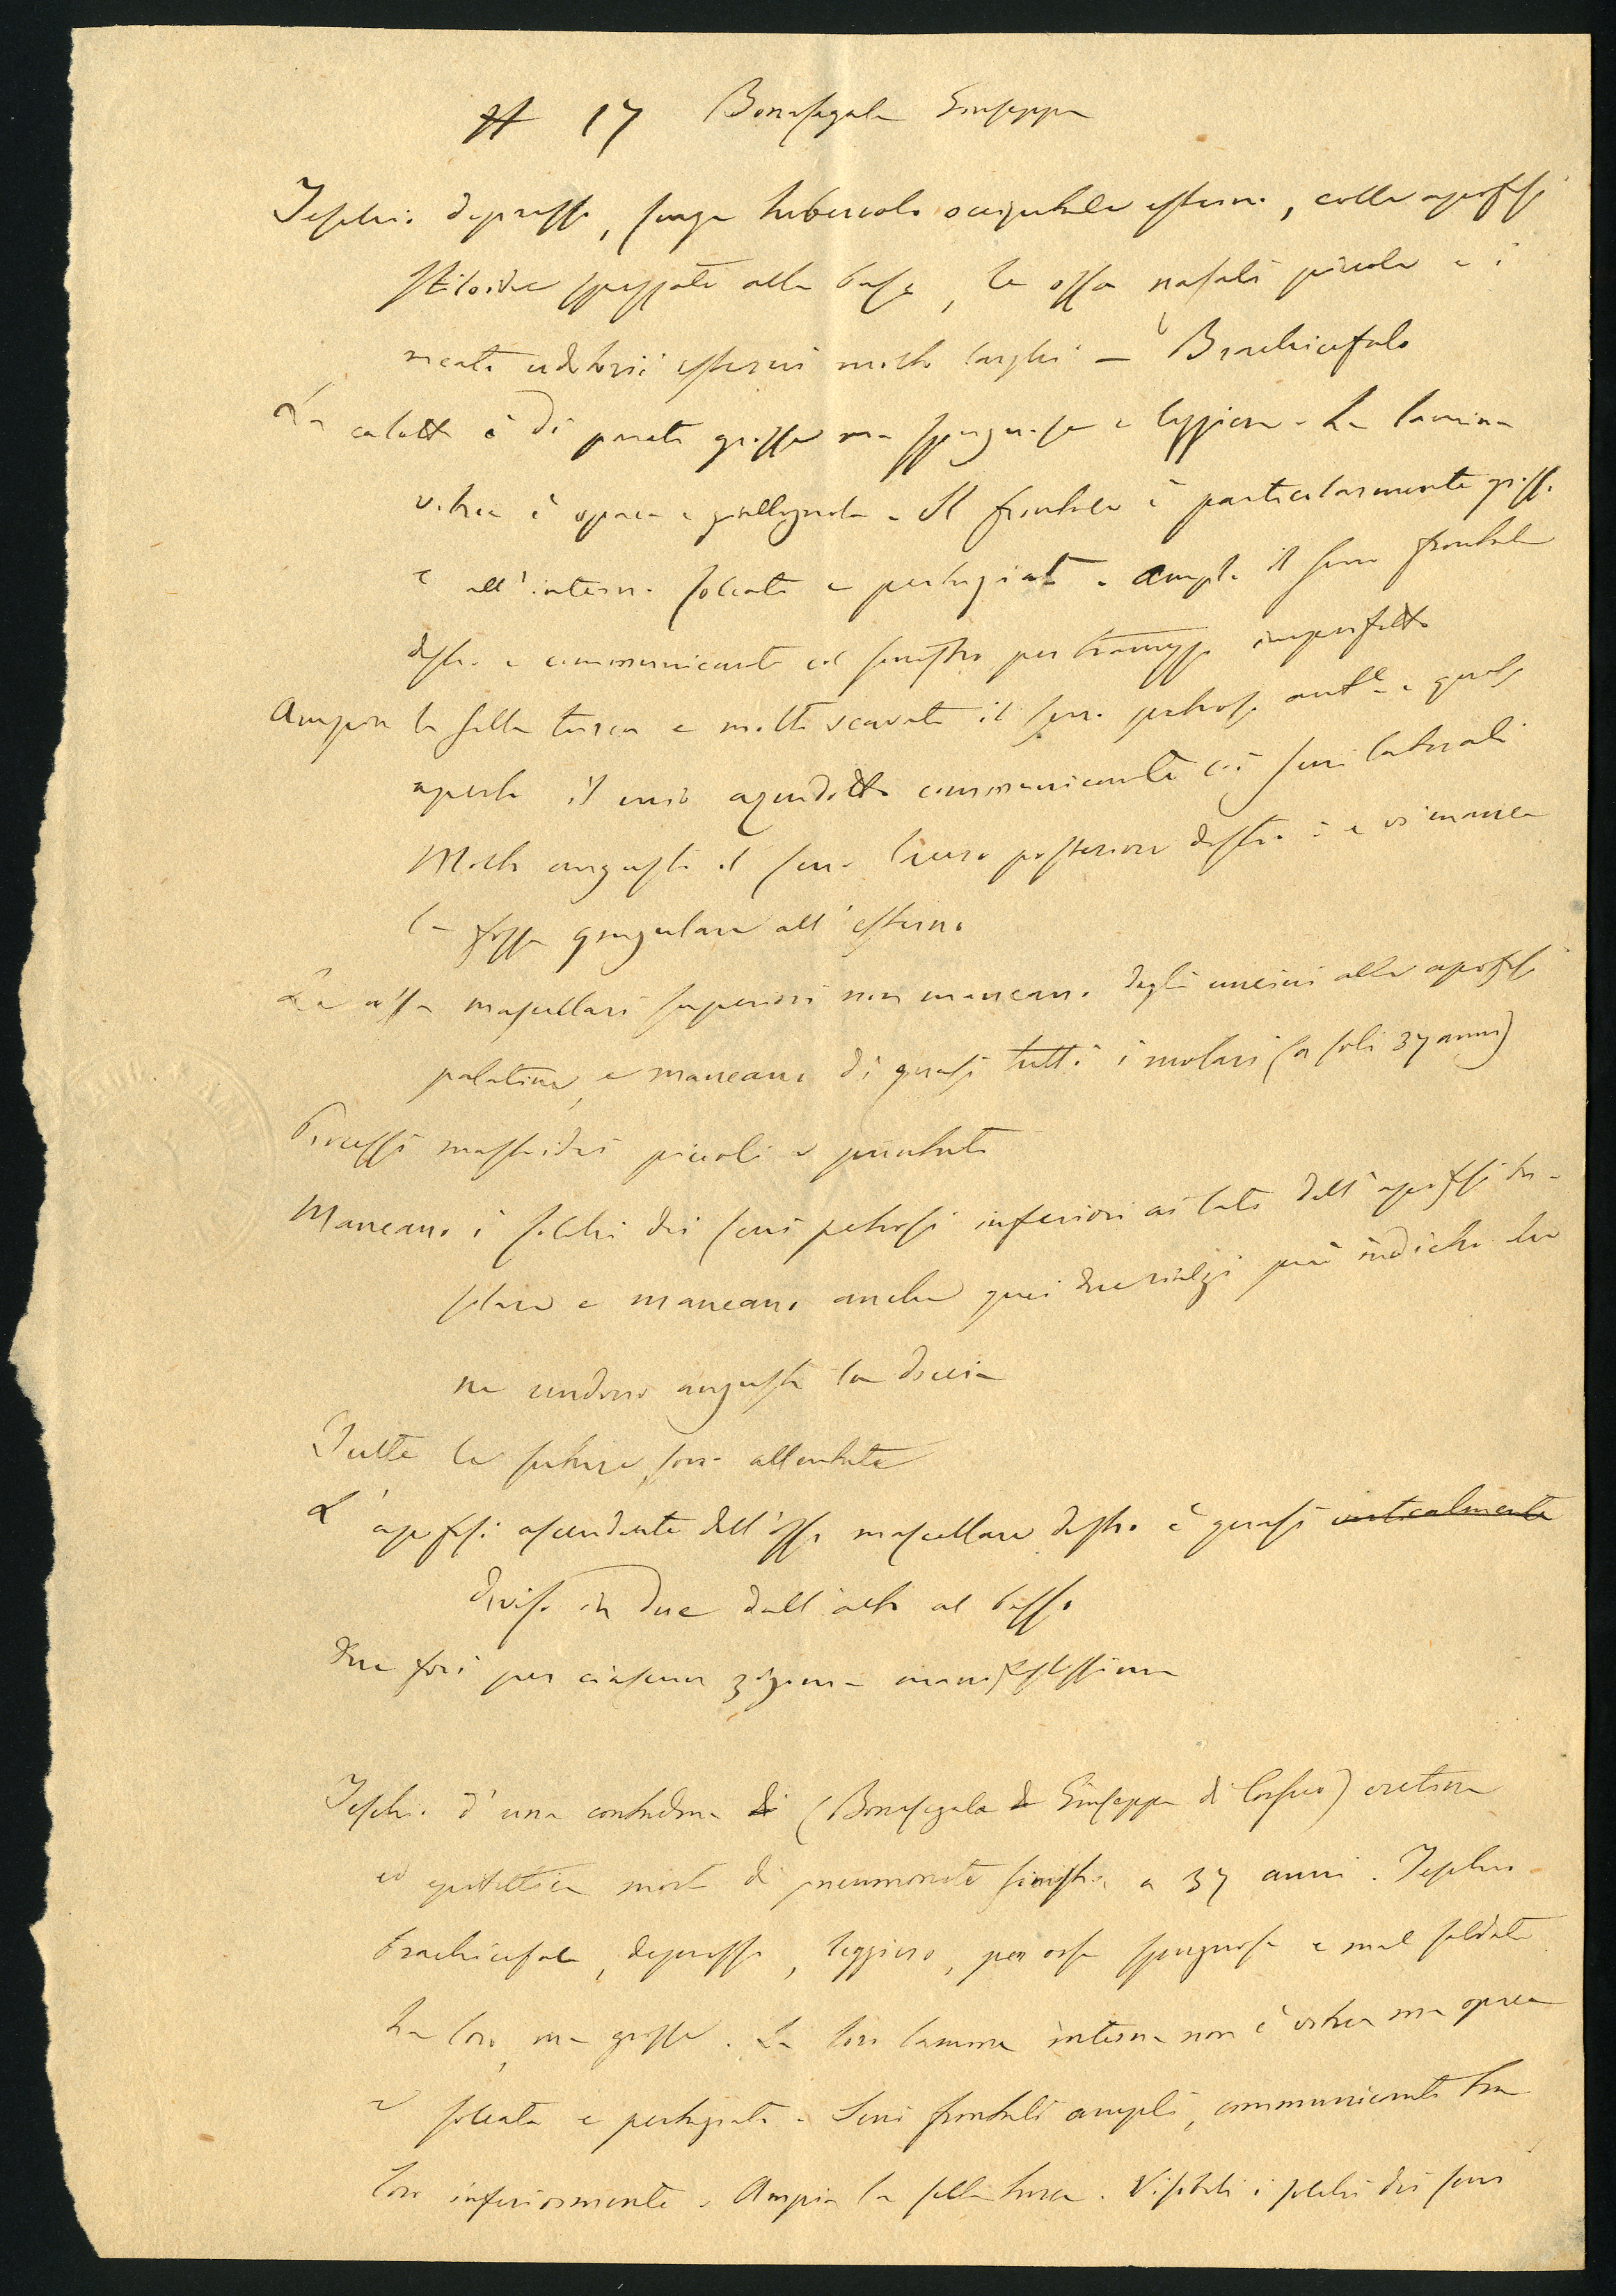 # 17 Bonasegala Giuseppa
Teschio depresso, senza tubercolo occipitale esterno, colle apofisi
stiloidee spezzate alla base, le ossa nasali piccole e i
meati uditorii esterni molto larghi — Brachicefalo
La calotta è di pareti grosse ma spugnose e leggiera - La lamina
vitrea è opaca e giallognola - Il frontale è particolarmente grosso
e all'interno solcato e pertugiato - Ampio il seno frontale
destro e communicante col sinistro per tramezzo imperfetto
Ampia la sella turcica e molto scavato il seno petroso ant.e e quasi
aperto il suo aquedotto communicante coi seni laterali
Molto angusto il foro lacero posteriore destro e vi manca
la fossa giugulare all'esterno
Le ossa mascellari superiori non mancano degli uncini alle apofisi
palatine, e mancano di quasi tutti i molari (a soli 37 anni)
Processi mastoidei piccoli e puntuti
Mancano i solchi dei seni petrosi inferiori ai lati dell'apofisi ba-
silare e mancano anche quei due rialzi più indietro che
ne rendono angusta la doccia
Tutte le suture sono allentate
L'apofisi ascendente dell'osso mascellare destro è quasi verticalmente
diviso in due dall'alto al basso
Due fori per ciascun zigoma manifestissimi
Teschio d'una contadina di (Bonasegala di Giuseppa di Corsico) cretina
ed epilettica morta di pneumonite sinistra a 37 anni. Teschio
brachicefalo, depresso, leggiero, per ossa spugnose e mal saldate
tra loro, ma grosse. La loro lamina interna non è vitrea ma opaca
e solcata e pertugiata - Seni frontali ampli, communicanti tra
loro inferiormente. Ampia la sella turcica. Visibili i solchi dei seni